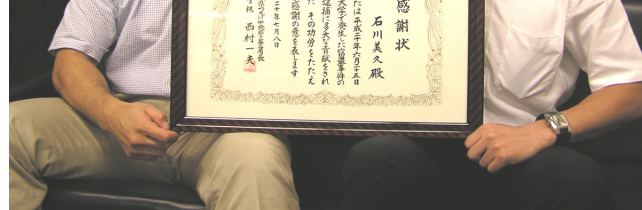 感謝状
石川美久殿
たは平成二十年六月二十五日
大学で発生した窃盗事件の
逮捕に多大な貢献をされ
た その功労をたたえ
感謝の意を表します
二十年七月八日
西村一夫